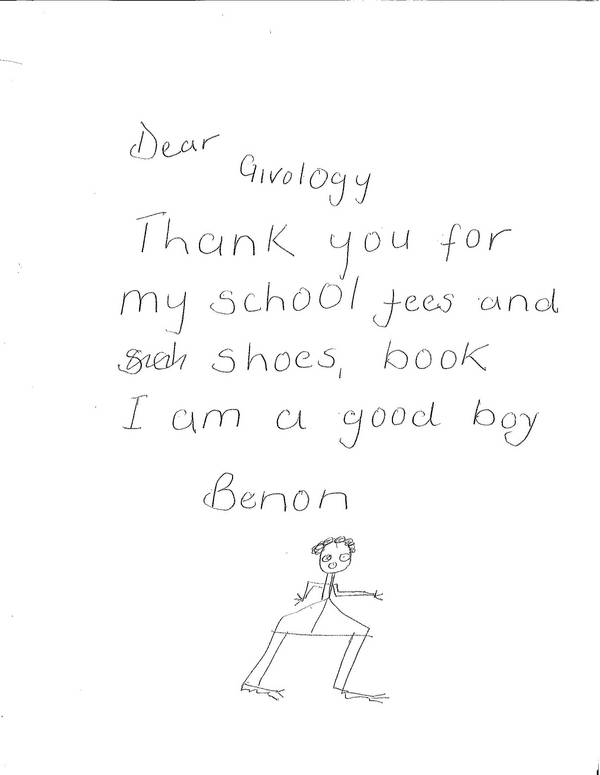 Dear
Givology
Thank you for
my school fees and
shoes, book
I am a good boy
Benon